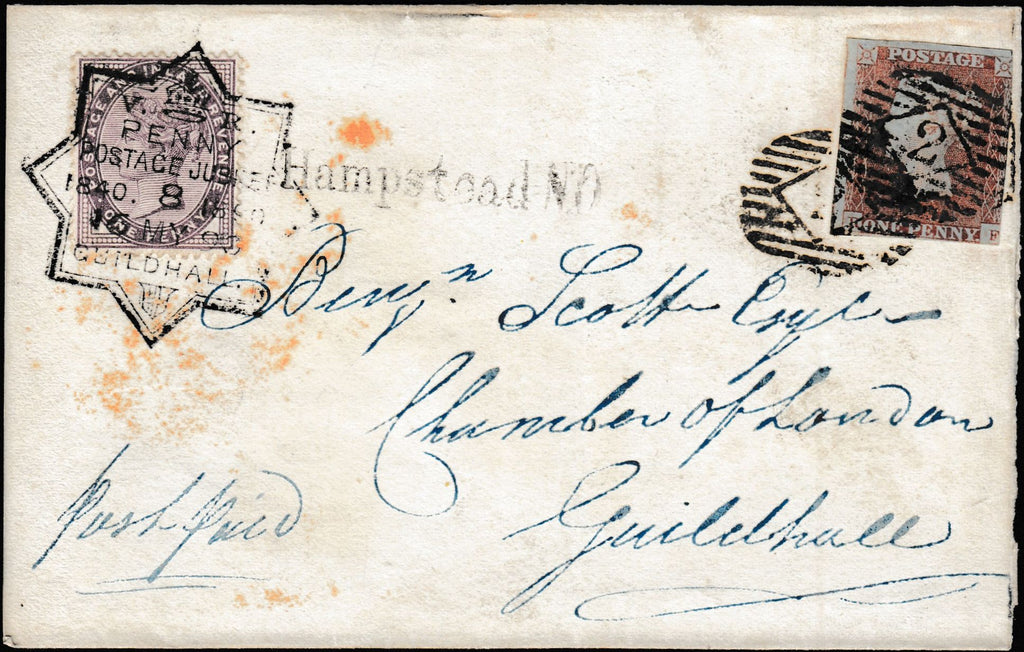 POSTAGE AND INLAND REVENUE
V. R.
PENNY
POSTAGE JUBILEE
1840. 8 1890
16 MY 90
GUILDHALL
Hampstead NO
POSTAGE
2
ONE PENNY.
F
Benjn Scott Esqre
Chamber of London
Guildhall
Post Paid